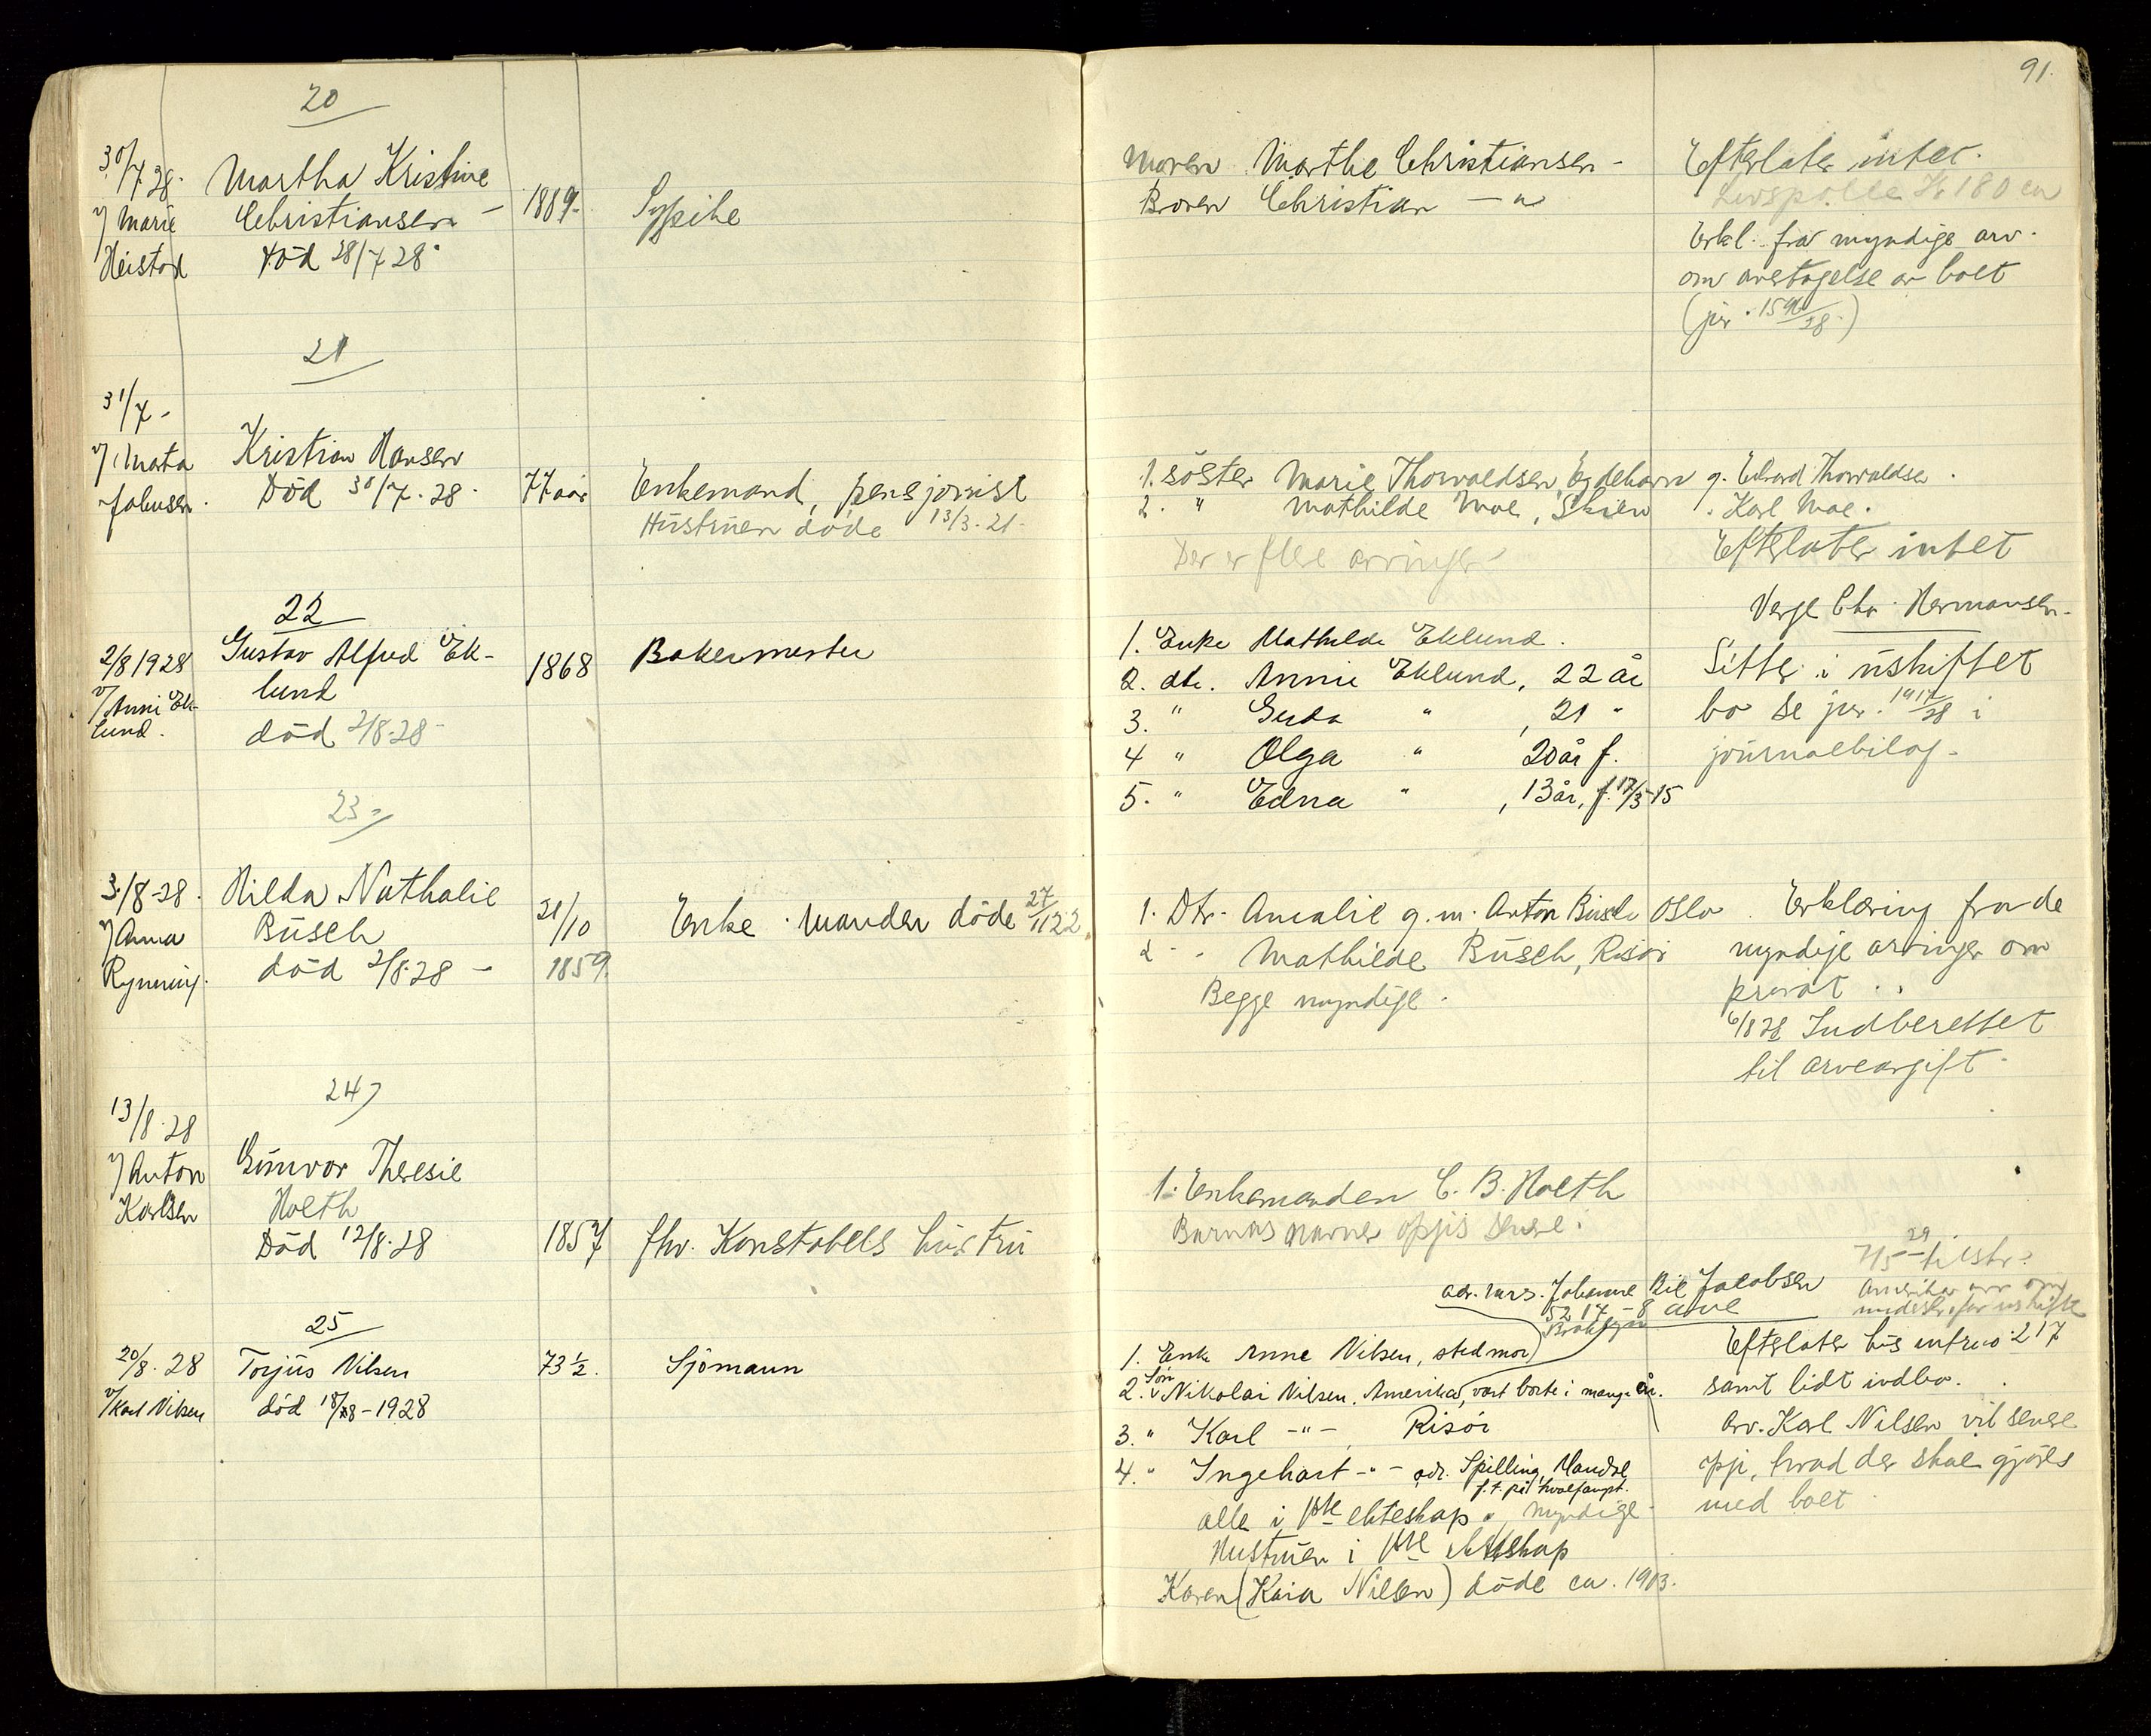 91.
20
30/7 28.
v/ Marie
Heistad
Martha Kristine
Christiansen -
Död 28/7 28.
1889.
Sypike
Moren Marthe Christiansen -
Broren Christian - " -
Efterlater intet.
Livspolise Kr 180 ca
Erkl. fra myndige arv.
om overtagelse av boet
(jnr. 1546/28.)
21
31/7 -
v/ Marta
Johnsen.
Kristian Hansen
Död 30/7. 28.
77 aar
Enkemand, pensjonist
Hustruen döde 13/3. 21.
1. söster Marie Thorvaldsen, Egdehavn g. Edvard Thorvaldsen.
2. " Mathilde Moe, Skien " Karl Moe.
Der er flere arvinger
Efterlater intet
22
2/8 1928
v/ Anni Ek-
lund.
Gustav Alfred Ek-
lund
död 2/8-28-
1868
Bakermester
1. Enke Mathilde Eklund.
2. dtr. Annie Eklund, 22 år
3. " Gerda " , 21 "
4 " Olga " 20 år f.
5. " Edna " , 13 år, f. 17/3-15
Verge Chr. Hermansen.
Sitter i uskiftet
bo se jnr. 1917/28 i
journalbilag.
23
3/8-28.
v/ Anna
Rynering.
Hilda Nathalie
Büsch
död 2/8-28 -
21/10
1859.
Enke. Manden döde 27/11 22
1. Dtr. Amalie g. m. Anton Büsch Oslo
2 - - Mathilde Büsch, Risör
Begge myndige.
Erklæring fra de
myndige arvinger om
privat ..
6/8 28 Indberettet
til arveavgift.
24
13/8. 28
v/ Anton
Karlsen
Gunvor Theresie
Holth
Död 12/8. 28
1857
fhv. Konstabels hustru
1. Enkemanden C. B. Holth
Barnas navne opgis senere.
25
20/8. 28
v/ Karl Nilsen
Torjus Nilsen
död 18/8-1928
73 ½.
Sjömann
adr. Mrs. Johanne Jacobsen
5217 - 8 ave
Brooklyn
1. Enke Anne Nilsen, stedmor
2. Sön Nikolai Nilsen, Amerika, vært borte i mange år.
3. " Karl -"-, Risör
4. " Ingehart -"- adr. Spilling, Mandal
f. t. på hvalfangst.
alle i 1ste ekteskap, myndige
Hustruen i 1ste ekteskap
Karen (Kaia Nilsen) döde ca. 1903.
7/5 29 tilstr.
Amerika arv om
Efterlater hus mtr. no 217
samt lidt indbo.
Arv. Karl Nilsen vil senere
opgi, hvad der skal gjöres
med boet